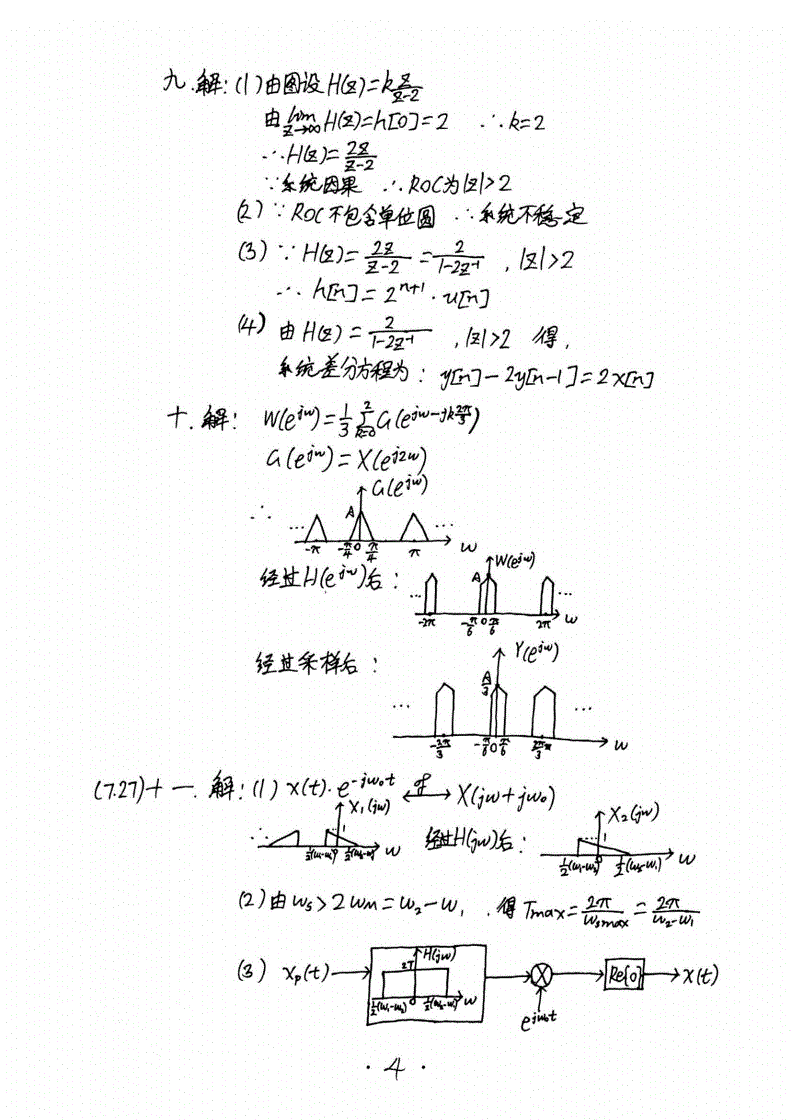 九.解:(1)由图设H(z)=k z/(z-2)
由lim z→∞ H(z)=h[0]=2 ∴k=2
∴H(z)=2z/(z-2)
∵系统因果 ∴ROC为|z|>2
(2)∵ROC不包含单位圆 ∴系统不稳定
(3)∵H(z)=2z/(z-2)=2/(1-2z⁻¹) ,|z|>2
∴h[n]=2ⁿ⁺¹·u[n]
(4)由H(z)=2/(1-2z⁻¹) ,|z|>2 得,
系统差分方程为:y[n]-2y[n-1]=2x[n]
十.解: W(e^jw)=1/3 Σ(k=0→2) G(e^jw-jk2π/3)
G(e^jw)=X(e^j2w)
∴ G(e^jw)
··· A ···
-π -π/4 0 π/4 π w
经过H(e^jw)后: W(e^jw)
··· A ···
-2π -π/6 0 π/6 2π w
经过采样后: Y(e^jw)
··· A/3 ···
-2π/3 -π/6 0 π/6 2π/3 w
(7.27)十一.解:(1) x(t)·e^-jw₀t ℱ↔ X(jw+jw₀)
∴ X₁(jw) 1 ½(w₁-w₂) 0 ½(w₂-w₁) w 经过H(jw)后: X₂(jw) 1 ½(w₁-w₂) 0 ½(w₂-w₁) w
(2)由ws>2wM=w₂-w₁ ,得Tmax=2π/wsmax=2π/(w₂-w₁)
(3) xp(t) H(jw) 2T ½(w₁-w₂) 0 ½(w₂-w₁) w × Re{0} x(t)
e^jw₀t
·4·